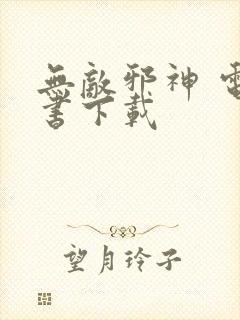 無敵邪神 電
書下載
望月玲子